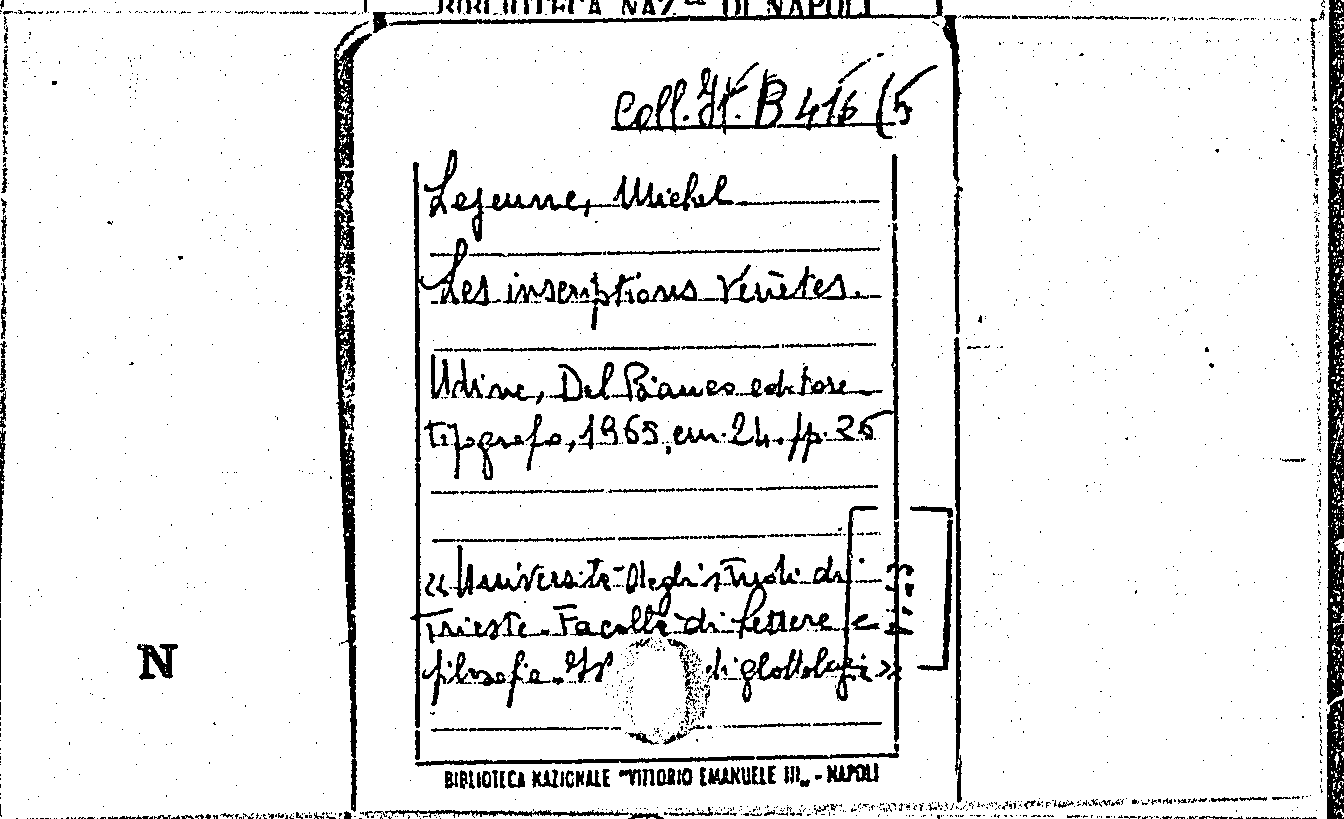 BIBLIOTECA NAZ.le DI NAPOLI
Coll. It. B 416 (5
Lejeune, Michel
Les inscriptions Vénètes.
Udine, Del Bianco editore
tipografo, 1965, cm. 24. pp. 26
«Università degli studi di
Trieste. Facoltà di lettere e
filosofia. Is di glottologi»
N
BIBLIOTECA NAZIONALE "VITTORIO EMANUELE III„ - NAPOLI